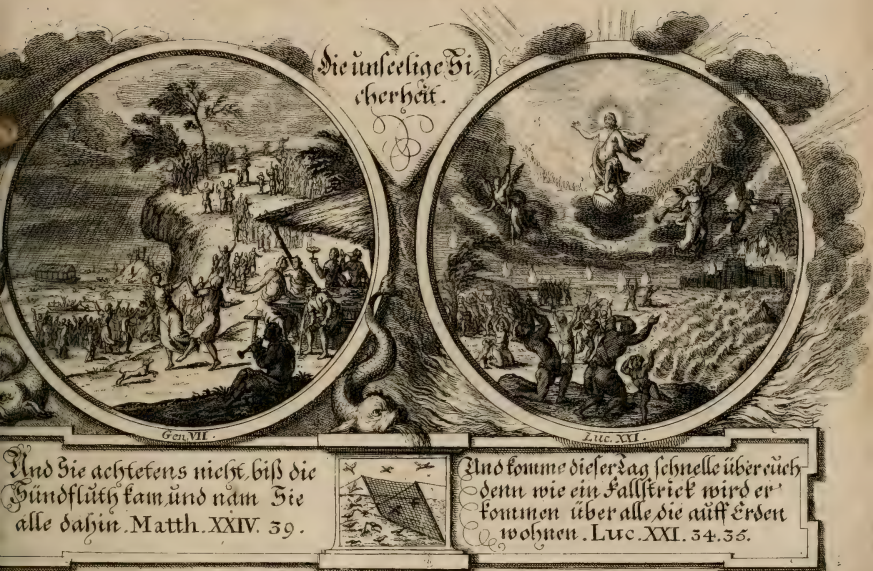 Die unseelige Si,
cherheit.
Gen. VII.
Luc. XXI.
Und Sie achtetens nicht, biß die
Sündfluth kam, und nam Sie
alle dahin. Matth. XXIV. 39.
Und komme dieser Tag schnelle über euch
denn wie ein Fallstrick wird er
kommen über alle, die auff Erden
wohnen. Luc. XXI. 34.35.